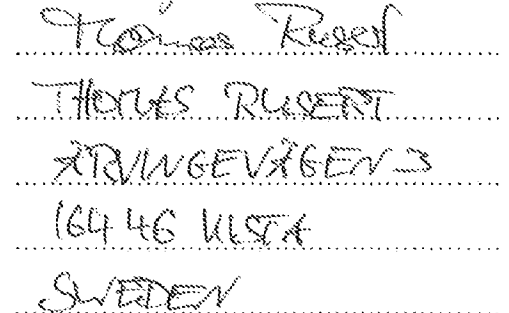 Thomas Rusert
THOMAS RUSERT
ÄRVINGEVÄGEN 3
164 46 KISTA
SWEDEN